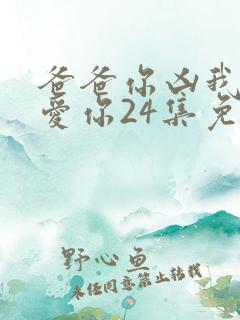 爸爸你凶我
爱你24集免
野心鱼
未经同意禁止转载